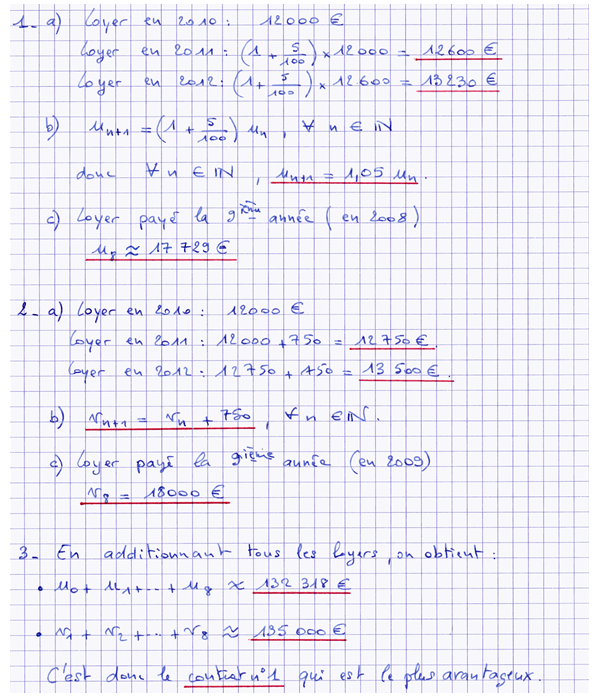 1_ a) Loyer en 2010 : 12000 €
Loyer en 2011 : (1 + 5/100) × 12000 = 12600 €
Loyer en 2012 : (1 + 5/100) × 12600 = 13230 €
b) u_{n+1} = (1 + 5/100) u_n , ∀ n ∈ IN
donc ∀ n ∈ IN , u_{n+1} = 1,05 u_n .
c) Loyer payé la 9ième année ( en 2008 )
u_8 ≈ 17 729 €
2_ a) Loyer en 2010 : 12000 €
Loyer en 2011 : 12000 + 750 = 12 750 € .
Loyer en 2012 : 12750 + 750 = 13 500 € .
b) v_{n+1} = v_n + 750 , ∀ n ∈ IN .
c) Loyer payé la 9ième année (en 2009)
v_8 = 18000 €
3_ En additionnant tous les loyers, on obtient :
• u_0 + u_1 + ... + u_8 ≈ 132 318 €
• v_1 + v_2 + ... + v_8 ≈ 135 000 €
C'est donc le contrat n°1 qui est le plus avantageux .